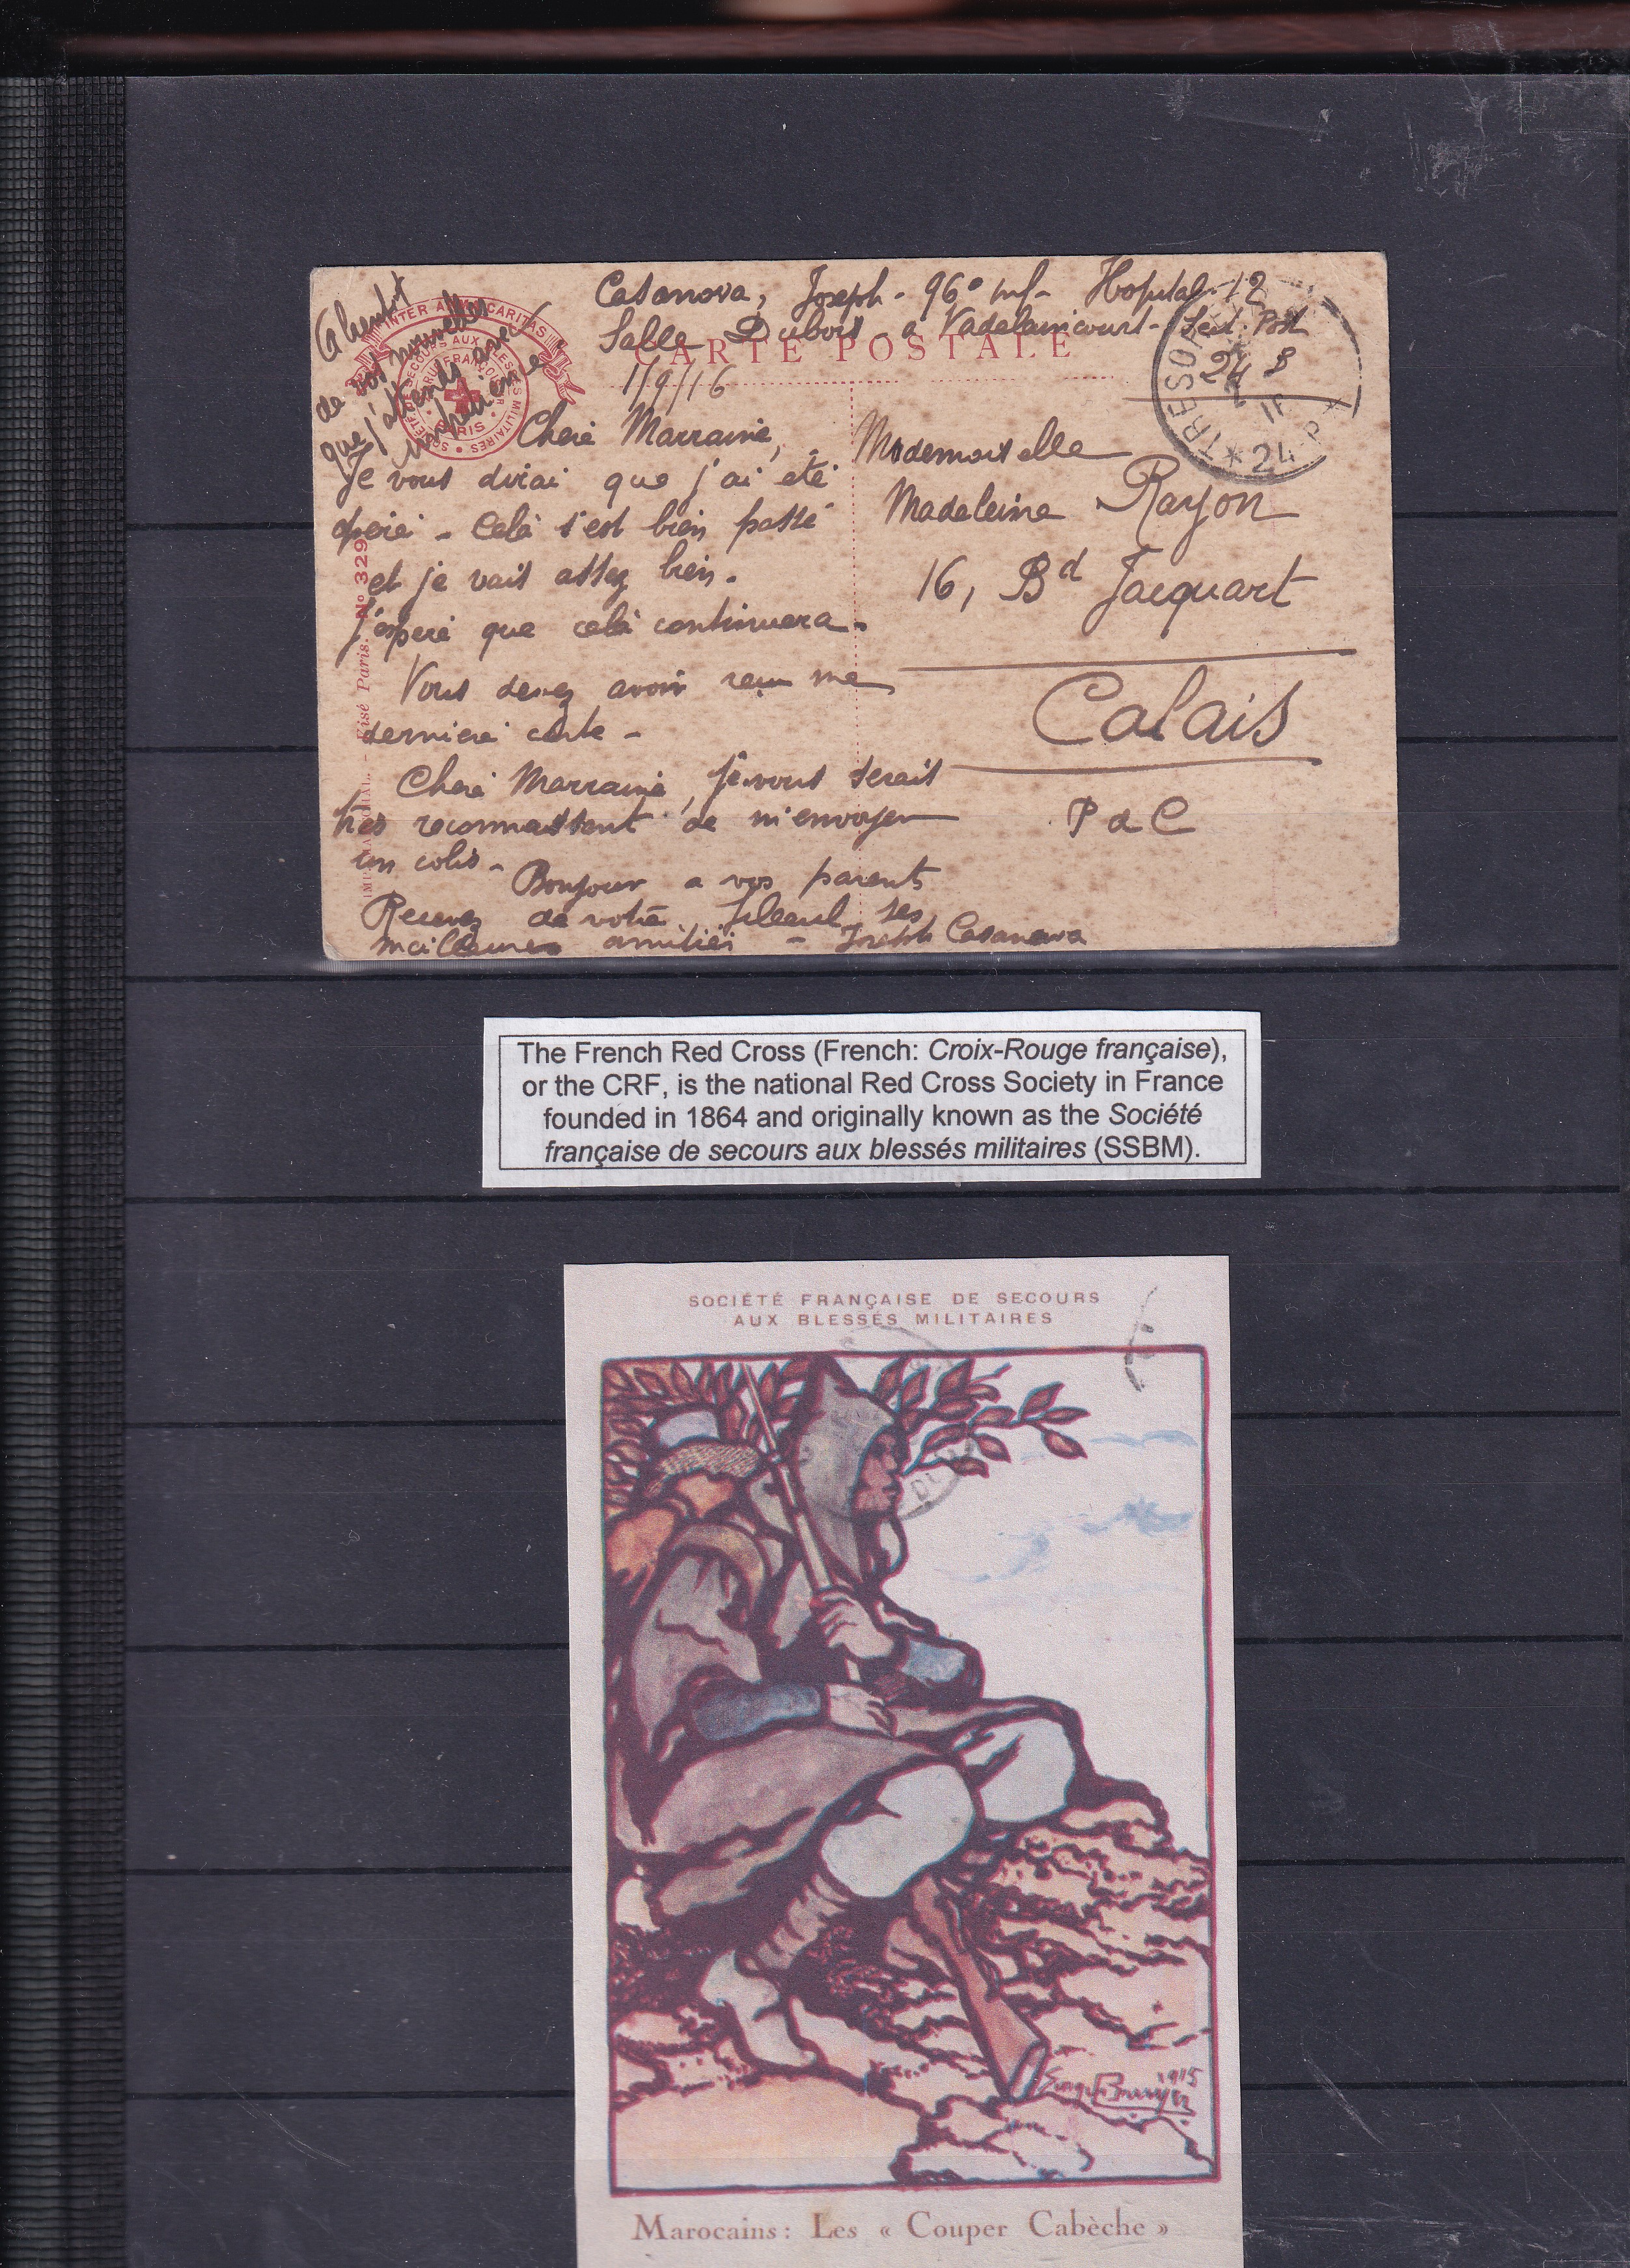 Casanova, Joseph - 96e inf - Hopital 12
Salle Dubois a Vadelaincourt - Sect. Post
24
CARTE POSTALE
1/9/16
A bientot
de vos nouvelles
que j'attends avec
impatience
INTER ARMA CARITAS
SOCIÉTÉ DE SECOURS AUX BLESSÉS MILITAIRES
CROIX ROUGE FRANÇAISE
PARIS
TRESOR
24
* 24 *
Cheré Marraine,
Je vous dirai que j'ai eté
operé - Celà s'est bien passé
et je vais assez bien.
J'esperé que celà continuera.
Vous devez avoir recu me
derniere carte -
Cheré Marraine, je vous serait
tres reconnaissent de m'envoyer
un colis -
Bonjour a vos parents
Recevez de votre filleul ses
meilleures amitiés - Joseph Casanova
Mademoiselle
Madeleine Rayon
16, Bd Jacquart
Calais
P d C
Visé Paris. No 329
The French Red Cross (French: Croix-Rouge française),
or the CRF, is the national Red Cross Society in France
founded in 1864 and originally known as the Société
française de secours aux blessés militaires (SSBM).
SOCIÉTÉ FRANÇAISE DE SECOURS
AUX BLESSÉS MILITAIRES
1915
Marocains : Les « Couper Cabèche »